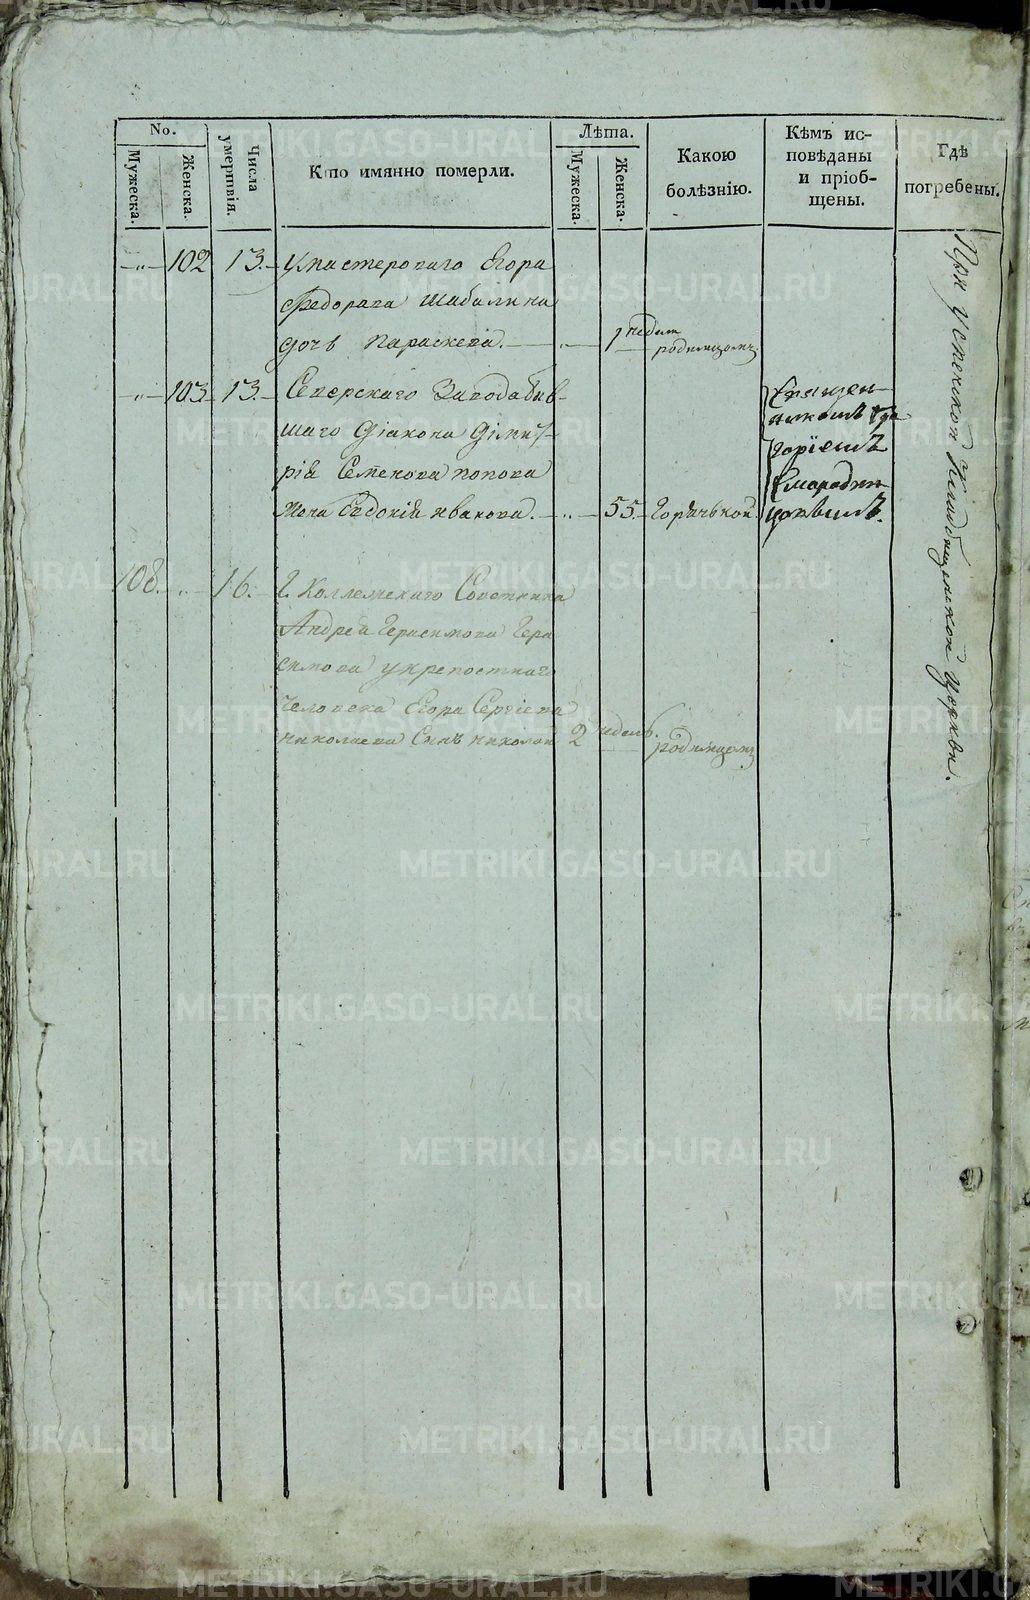 No.
Мужеска.
Женска.
Числа
умертвія.
Кто имянно померли.
Лѣта.
Мужеска.
Женска.
Какою
болѣзнію.
Кѣмъ ис-
повѣданы
и пріоб-
щены.
Гдѣ
погребены.
-„- 102 13. умастероваго Егора
Федорава Шабалина
дочь Параскева. -„- 1 недели родимцомъ.
-„- 103. 13. Сѣверскаго Завода быв-
шаго Діакона Діми҃т-
рія Семенова попова
жена Евдокія иванова. -„- 55. Горячькой.
Священ-
никомъ Гри
горіемъ
Смородин
цовымъ.
108. -„- 16. Г. Коллежскаго Советника
Андрея Герасимова Гера
симова укрепостнаго
человека Егора Сергіева
николаева Сынъ николай 2 недель. родимцомъ.
При успенской Кладбищенской церкви.
METRIKI.GASO-URAL.RU